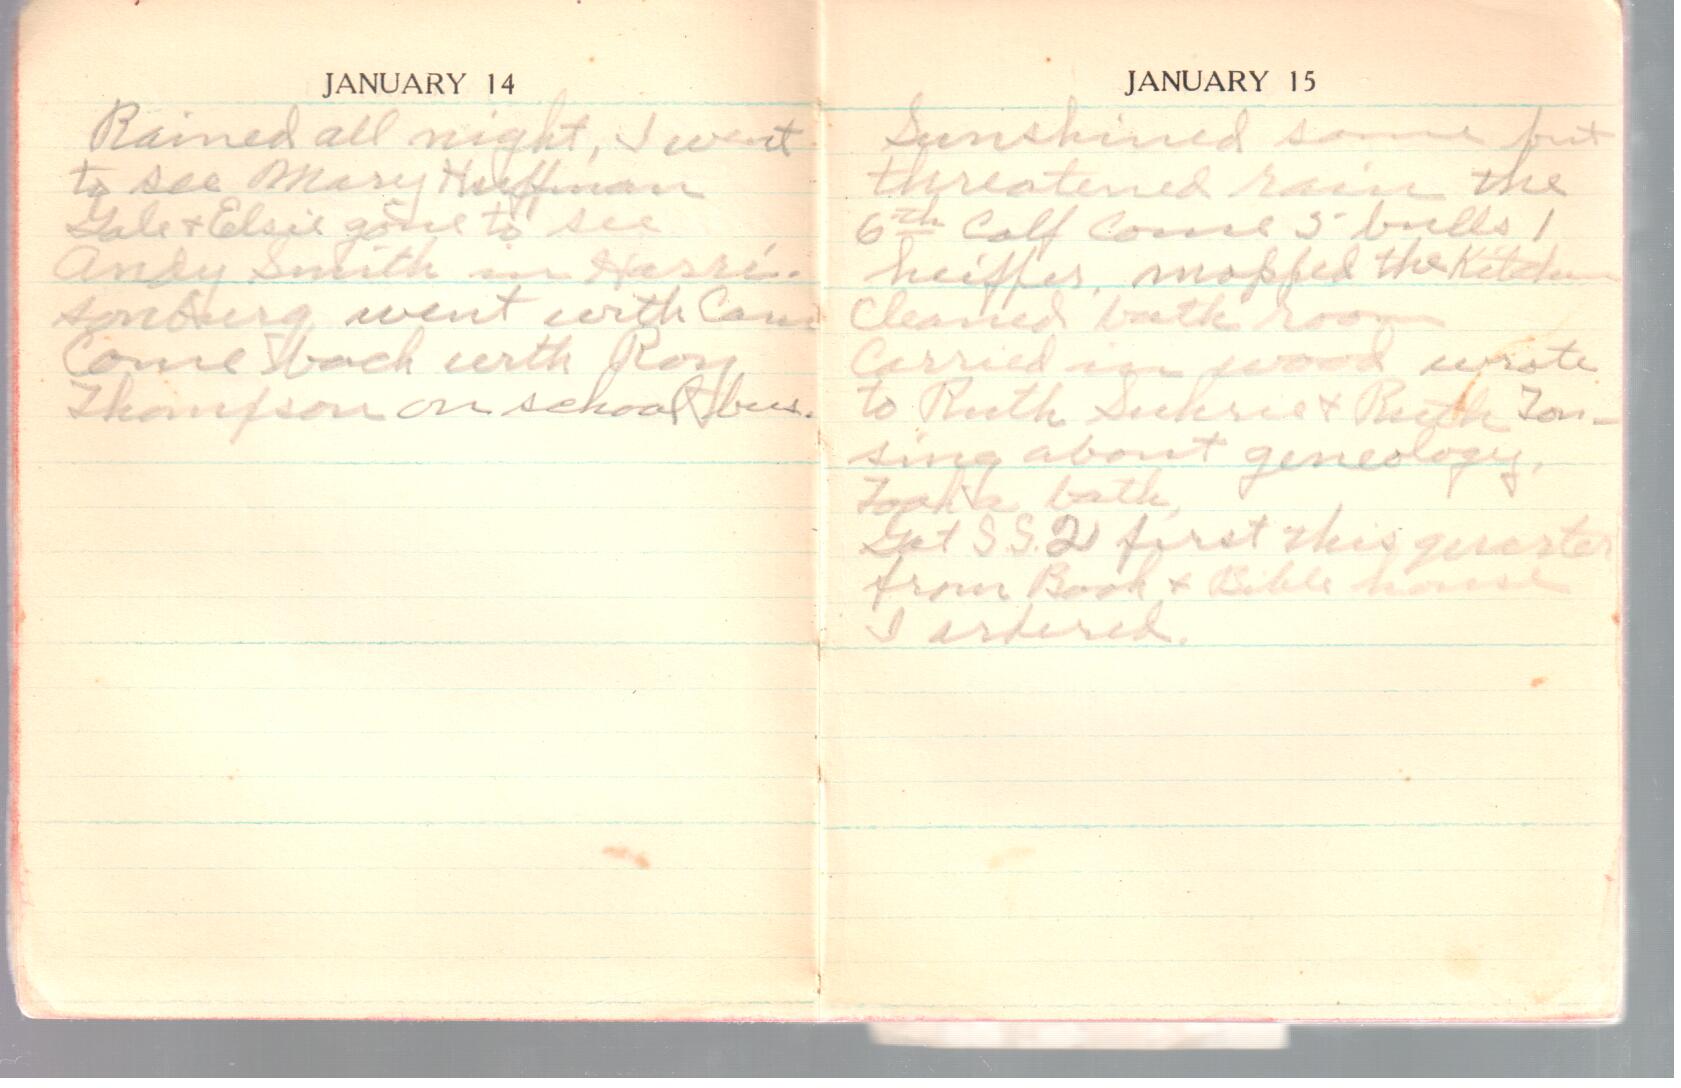 JANUARY 14
Rained all night, I went
to see Mary Huffman
Gale & Elsie gone to see
Andy Smith in Harri-
sonburg went with Cam
Come back with Roy
Thompson on school bus.
JANUARY 15
Sunshined some but
threatened rain the
6th Calf Come 5 bulls 1
heiffer, mopped the Kitchen
Cleaned bath room
Carried in wood wrote
to Ruth Suhrie & Ruth Ton-
sing about geneology,
Took a bath,
Got S.S. 2 first this quarter
from Book & Bible house
I ordered.